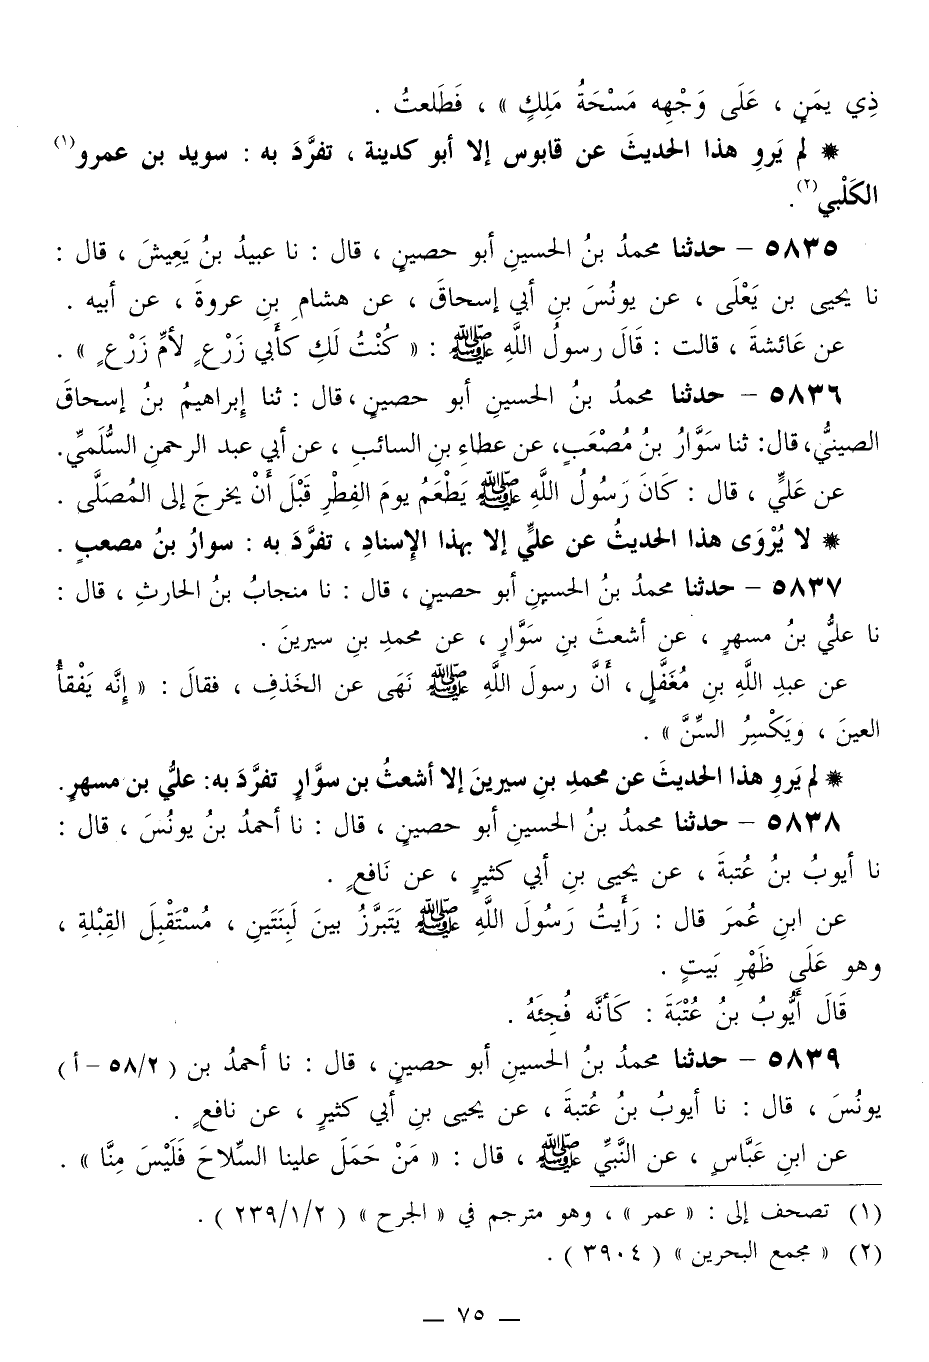 ذِي يمَنٍ ، عَلَى وَجْهِه مَسْحَةُ مَلِكٍ » ، فَطَلعتُ .
✵ لم يَروِ هذا الحديثَ عن قابوس إلا أبو كدينة ، تفرَّدَ به : سويد بن عمرو(١)
الكَلْبي(٢).
٥٨٣٥ – حدثنا محمدُ بنُ الحسينِ أبو حصينٍ ، قال : نا عبيدُ بنُ يَعِيشَ ، قال :
نا يحيى بن يَعْلَى ، عن يونُسَ بنِ أبي إسحاقَ ، عن هشامِ بنِ عروةَ ، عن أبيه .
عن عَائشةَ ، قالت : قَالَ رسولُ اللَّهِ ﷺ : « كُنْتُ لَكِ كأَبي زَرْعٍ لأمِّ زَرْعٍ » .
٥٨٣٦ – حدثنا محمدُ بنُ الحسينِ أبو حصينٍ ، قال : ثنا إبراهيمُ بنُ إسحاقَ
الصينيُّ، قال: ثنا سَوَّارُ بنُ مُصْعَبٍ، عن عطاءِ بنِ السائبِ ، عن أبي عبد الرحمنِ السُّلَميِّ.
عن عَليٍّ ، قال : كَانَ رَسُولُ اللَّهِ ﷺ يَطْعَمُ يومَ الفِطْرِ قَبْلَ أَنْ يخرجَ إلى المُصَلَّى .
✵ لا يُرْوَى هذا الحديثُ عن عليٍّ إلا بهذا الإسنادِ ، تفرَّدَ به : سوارُ بنُ مصعبٍ .
٥٨٣٧ – حدثنا محمدُ بنُ الحسينِ أبو حصينٍ ، قال : نا منجابُ بنُ الحارثِ ، قال :
نا عليُّ بنُ مسهرٍ ، عن أشعثَ بنِ سَوَّارٍ ، عن محمدِ بنِ سيرينَ .
عن عبدِ اللَّهِ بنِ مُغَفَّلٍ ، أَنَّ رسولَ اللَّهِ ﷺ نَهَى عن الخَذفِ ، فقالَ : « إنَّه يَفْقأُ
العينَ ، ويَكْسِرُ السِّنَّ » .
✵ لم يَروِ هذا الحديثَ عن محمدِ بنِ سيرينَ إلا أشعثُ بن سوَّارٍ تفرَّدَ به: عليُّ بن مسهرٍ.
٥٨٣٨ – حدثنا محمدُ بنُ الحسينِ أبو حصينٍ ، قال : نا أحمدُ بنُ يونُسَ ، قال :
نا أيوبُ بنُ عُتبةَ ، عن يحيى بنِ أبي كثيرٍ ، عن نَافعٍ .
عن ابنِ عُمرَ قال : رَأَيتُ رَسُولَ اللَّهِ ﷺ يَتَبرَّزُ بينَ لَبِنَتَينِ ، مُسْتَقْبِلَ القِبْلةِ ،
وهو عَلَى ظَهْرِ بَيتٍ .
قَالَ أَيُّوبُ بنُ عُتْبَةَ : كَأنَّه فُجِئَهُ .
٥٨٣٩ – حدثنا محمدُ بنُ الحسينِ أبو حصينٍ ، قال : نا أحمدُ بن ( ٥٨/٢ – أ )
يونُسَ ، قال : نا أيوبُ بنُ عُتبةَ ، عن يحيى بنِ أبي كثيرٍ ، عن نافعٍ .
عن ابنِ عَبَّاسٍ ، عن النَّبيِّ ﷺ ، قال : « مَنْ حَمَلَ علينا السِّلاحَ فَلَيْسَ مِنَّا » .
(١) تصحف إلى : « عمر » ، وهو مترجم في « الجرح » ( ٢٣٩/١/٢ ) .
(٢) « مجمع البحرين » ( ٣٩٠٤ ) .
— ٧٥ —